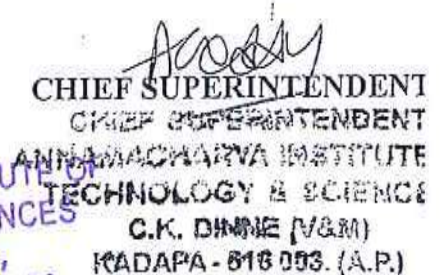 CHIEF SUPERINTENDENT
CHIEF SUPERINTENDENT
ANNAMACHARYA INSTITUTE
UTE OF
TECHNOLOGY & SCIENCE
NCES
C.K. DINNE (V&M)
KADAPA - 516 003. (A.P.)